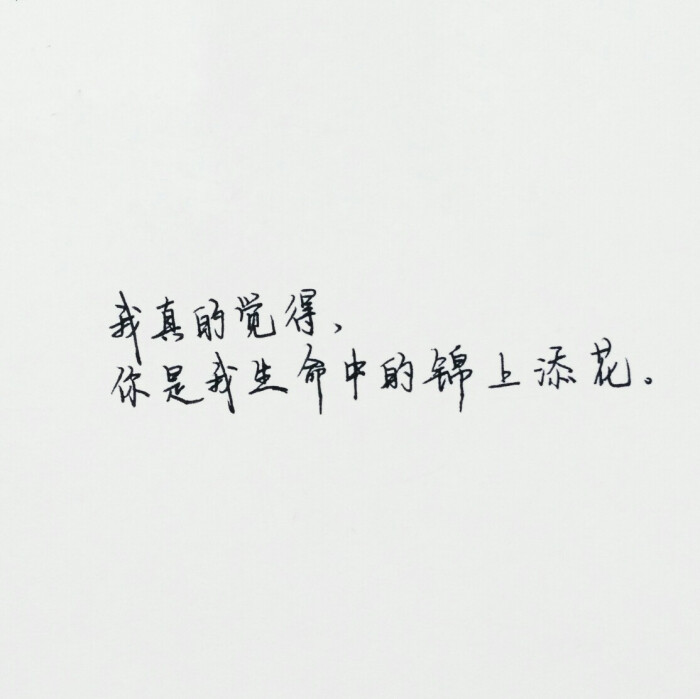 我真的觉得、
你是我生命中的锦上添花。